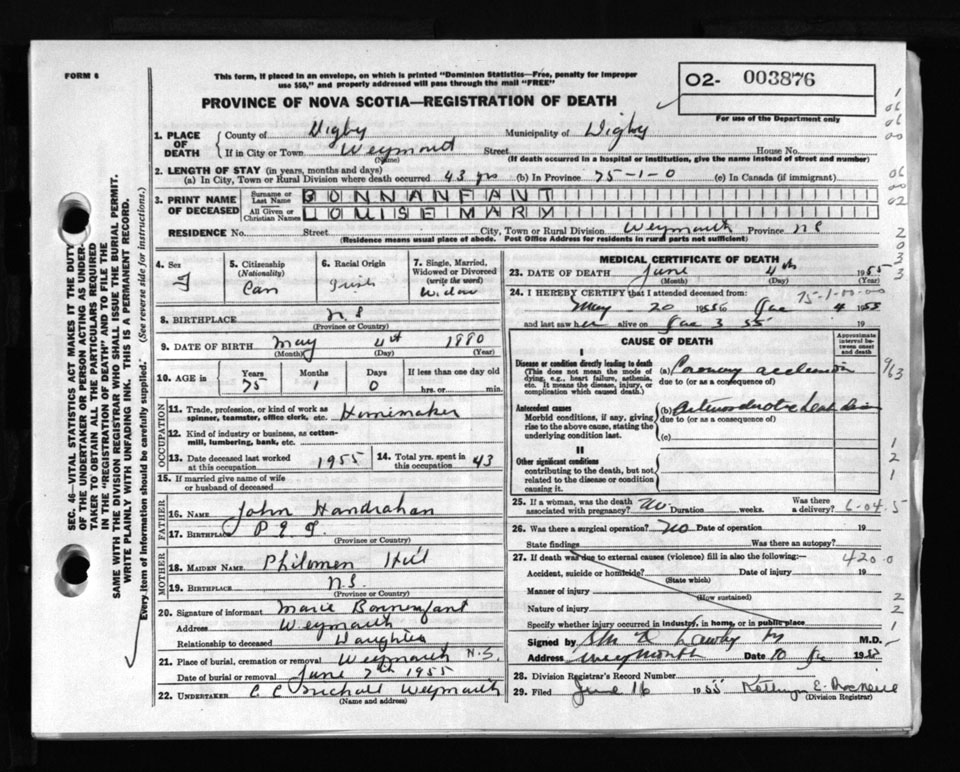 FORM 6
This form, if placed in an envelope, on which is printed "Dominion Statistics—Free, penalty for improper
use $50," and properly addressed will pass through the mail "FREE"
PROVINCE OF NOVA SCOTIA—REGISTRATION OF DEATH
O2- 003876
For use of the Department only
SEC. 46—VITAL STATISTICS ACT MAKES IT THE DUTY
OF THE UNDERTAKER OR PERSON ACTING AS UNDER-
TAKER TO OBTAIN ALL THE PARTICULARS REQUIRED
IN THE "REGISTRATION OF DEATH" AND TO FILE THE
SAME WITH THE DIVISION REGISTRAR WHO SHALL ISSUE THE BURIAL PERMIT.
WRITE PLAINLY WITH UNFADING INK. THIS IS A PERMANENT RECORD.
Every item of information should be carefully supplied. (See reverse side for instructions.)
1. PLACE OF DEATH
County of Digby Municipality of Digby
If in City or Town Weymouth Street House No.
(Name) (If death occurred in a hospital or institution, give the name instead of street and number)
2. LENGTH OF STAY (in years, months and days)
(a) In City, Town or Rural Division where death occurred 43 yrs (b) In Province 75-1-0 (c) In Canada (if immigrant)
3. PRINT NAME OF DECEASED
Surname or Last Name BONNANFANT
All Given or Christian Names LOUISE MARY
RESIDENCE No. Street City, Town or Rural Division Weymouth Province N S
(Residence means usual place of abode. Post Office Address for residents in rural parts not sufficient)
4. Sex F
5. Citizenship (Nationality) Can
6. Racial Origin Irish
7. Single, Married, Widowed or Divorced (write the word) Widow
8. BIRTHPLACE N S
(Province or Country)
9. DATE OF BIRTH May 4th 1880
(Month) (Day) (Year)
10. AGE in Years 75 Months 1 Days 0 If less than one day old hrs. or min.
OCCUPATION
11. Trade, profession, or kind of work as spinner, teamster, office clerk, etc. Homemaker
12. Kind of industry or business, as cotton-mill, lumbering, bank, etc.
13. Date deceased last worked at this occupation 1955
14. Total yrs. spent in this occupation 43
15. If married give name of wife or husband of deceased
FATHER
16. NAME John Handrahan
17. BIRTHPLACE P E I
(Province or Country)
MOTHER
18. MAIDEN NAME Philomen Hill
19. BIRTHPLACE N.S.
(Province or Country)
20. Signature of informant Marie Bonnenfant
Address Weymouth
Relationship to deceased Daughter
21. Place of burial, cremation or removal Weymouth N.S.
Date of burial or removal June 7th 1955
22. UNDERTAKER C C Weymouth
(Name and address)
MEDICAL CERTIFICATE OF DEATH
23. DATE OF DEATH June 4th 1955
(Month) (Day)
75-1-0
24. I HEREBY CERTIFY that I attended deceased from:
May 20 1955 to 4 1955
and last saw her alive on 3 55 19
CAUSE OF DEATH
Approximate interval between onset and death
I
Disease or condition directly leading to death
(This does not mean the mode of dying, e.g., heart failure, asthenia, etc. It means the disease, injury, or complication which caused death.)
(a) Coronary occlusion
due to (or as a consequence of)
Antecedent causes
Morbid conditions, if any, giving rise to the above cause, stating the underlying condition last.
(b)
due to (or as a consequence of)
(c)
II
Other significant conditions
contributing to the death, but not related to the disease or condition causing it.
25. If a woman, was the death associated with pregnancy? No Duration weeks. Was there a delivery?
6-04-5
26. Was there a surgical operation? No Date of operation 19
State findings Was there an autopsy?
27. If death was due to external causes (violence) fill in also the following:— 420-0
Accident, suicide or homicide? Date of injury 19
(State which)
Manner of injury
(How sustained)
Nature of injury
Specify whether injury occurred in industry, in home, or in public place
Signed by M.D.
Address Weymouth Date 10 19
28. Division Registrar's Record Number
29. Filed June 16 1955
(Division Registrar)